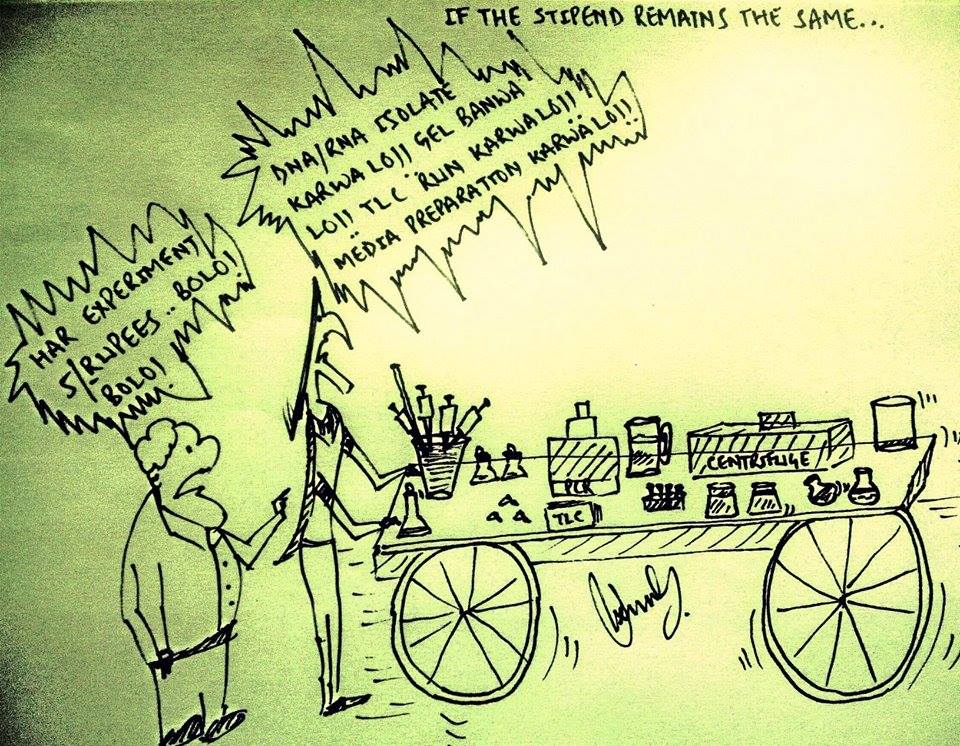 IF THE STIPEND REMAINS THE SAME...
DNA/RNA ISOLATE
KARWA LO!! GEL BANWA
LO!! TLC RUN KARWALO!!
MEDIA PREPARATION KARWALO!!
HAR EXPERIMENT
5/RUPEES.. BOLO!
BOLO!
PCR
CENTRIFUGE
TLC